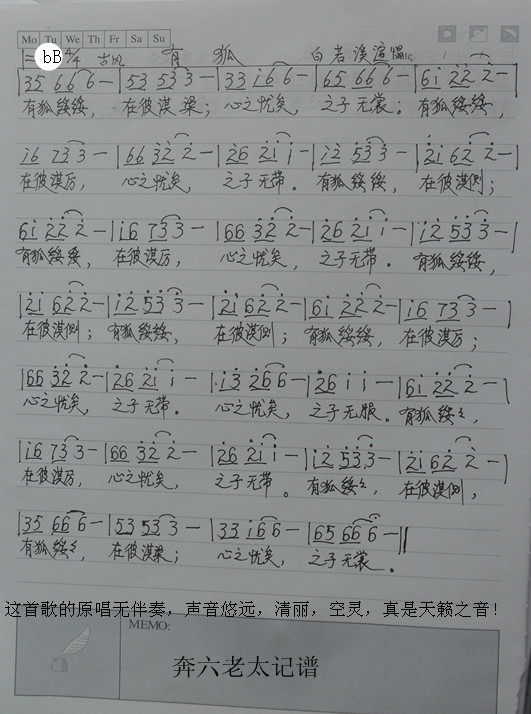 Mo Tu We Th Fr Sa Su
bB 4/4 古风 有 狐 白若溪演唱
|35 66 6-|53 53 3-|33 i6 6-|65 66 6-|6i 22 2-|
有狐绥绥, 在彼淇梁; 心之忧矣, 之子无裳。有狐绥绥,
i6 73 3-|66 32 2-|26 2i i-|i2 53 3-|2i 62 2-|
在彼淇厉, 心之忧矣, 之子无带。有狐绥绥, 在彼淇侧;
6i 22 2-|i6 73 3-|66 32 2-|26 2i i-|i2 53 3-|
有狐绥绥, 在彼淇厉, 心之忧矣, 之子无带。有狐绥绥,
2i 62 2-|i2 53 3-|2i 62 2-|6i 22 2-|i6 73 3-|
在彼淇侧; 有狐绥绥, 在彼淇侧; 有狐绥绥, 在彼淇厉;
|66 32 2-|26 2i i-|i3 26 6-|26 i i-|6i 22 2-|
心之忧矣, 之子无带。心之忧矣, 之子无服。有狐绥々,
|i6 73 3-|66 32 2-|26 2i i-|i2 53 3-|2i 62 2-|
在彼淇厉, 心之忧矣, 之子无带。有狐绥々, 在彼淇侧,
|35 66 6-|53 53 3-|33 i6 6-|65 66 6-||
有狐绥々, 在彼淇梁; 心之忧矣, 之子无裳。
这首歌的原唱无伴奏，声音悠远，清丽，空灵，真是天籁之音！
MEMO:
奔六老太记谱